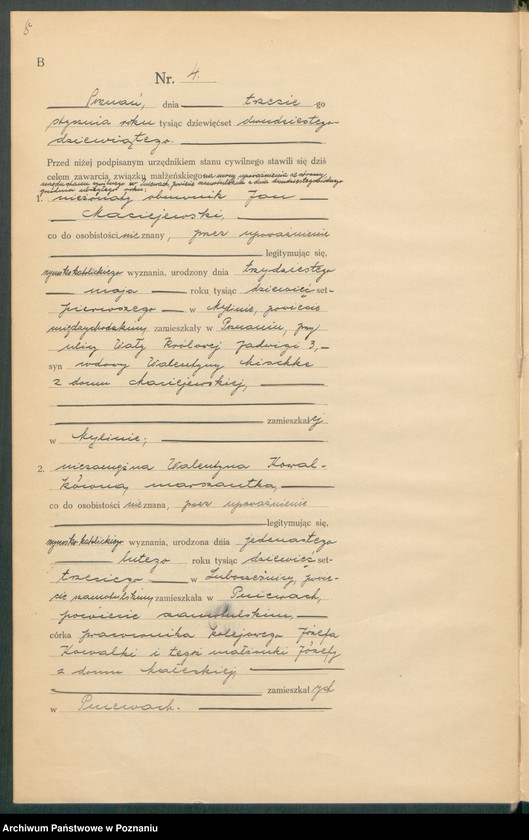 B
Nr. 4.
Poznań, dnia trzecie go
stycznia roku tysiąc dziewięćset dwudziestego
dziewiątego.
Przed niżej podpisanym urzędnikiem stanu cywilnego stawili się dziś
celem zawarcia związku małżeńskiego na mocy upoważnienia
urzędu stanu cywilnego w
grudnia ubiegłego roku:
1. nieżonaty obuwnik Jan
Maciejewski,
co do osobistości nie znany, przez upoważnienie
legitymując się,
rzymsko katolickiego wyznania, urodzony dnia trzydziestego
maja roku tysiąc dziewięć set-
pierwszego w Mylinie, powiecie
międzychodzkim, zamieszkały w Poznaniu, przy
ulicy Wały Królowej Jadwigi 3,
syn wdowy Walentyny Mischke
z domu Maciejewskiej,
zamieszkałej
w Mylinie;
2. niezamężna Walentyna Kowal-
kówna, marszantka,
co do osobistości nie znana, przez upoważnienie
legitymując się,
rzymsko katolickiego wyznania, urodzona dnia jedenastego
lutego roku tysiąc dziewięć set-
trzeciego w Lubosznicy, powie-
cie szamotulskim, zamieszkała w Pniewach,
powiecie szamotulskim,
córka pracownika kolejowego Józefa
Kowalki i tegoż małżonki Józefy
z domu
zamieszkałych
w Pniewach.
Archiwum Państwowe w Poznaniu